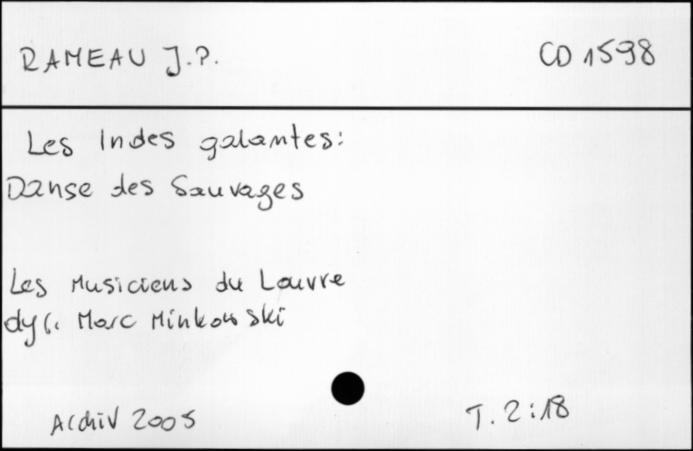 RAMEAU J.P. CD 1598
Les Indes galantes:
Danse des Sauvages
Les Musiciens du Louvre
dyr. Marc Minkowski
Archiv 2005 T. 2:18